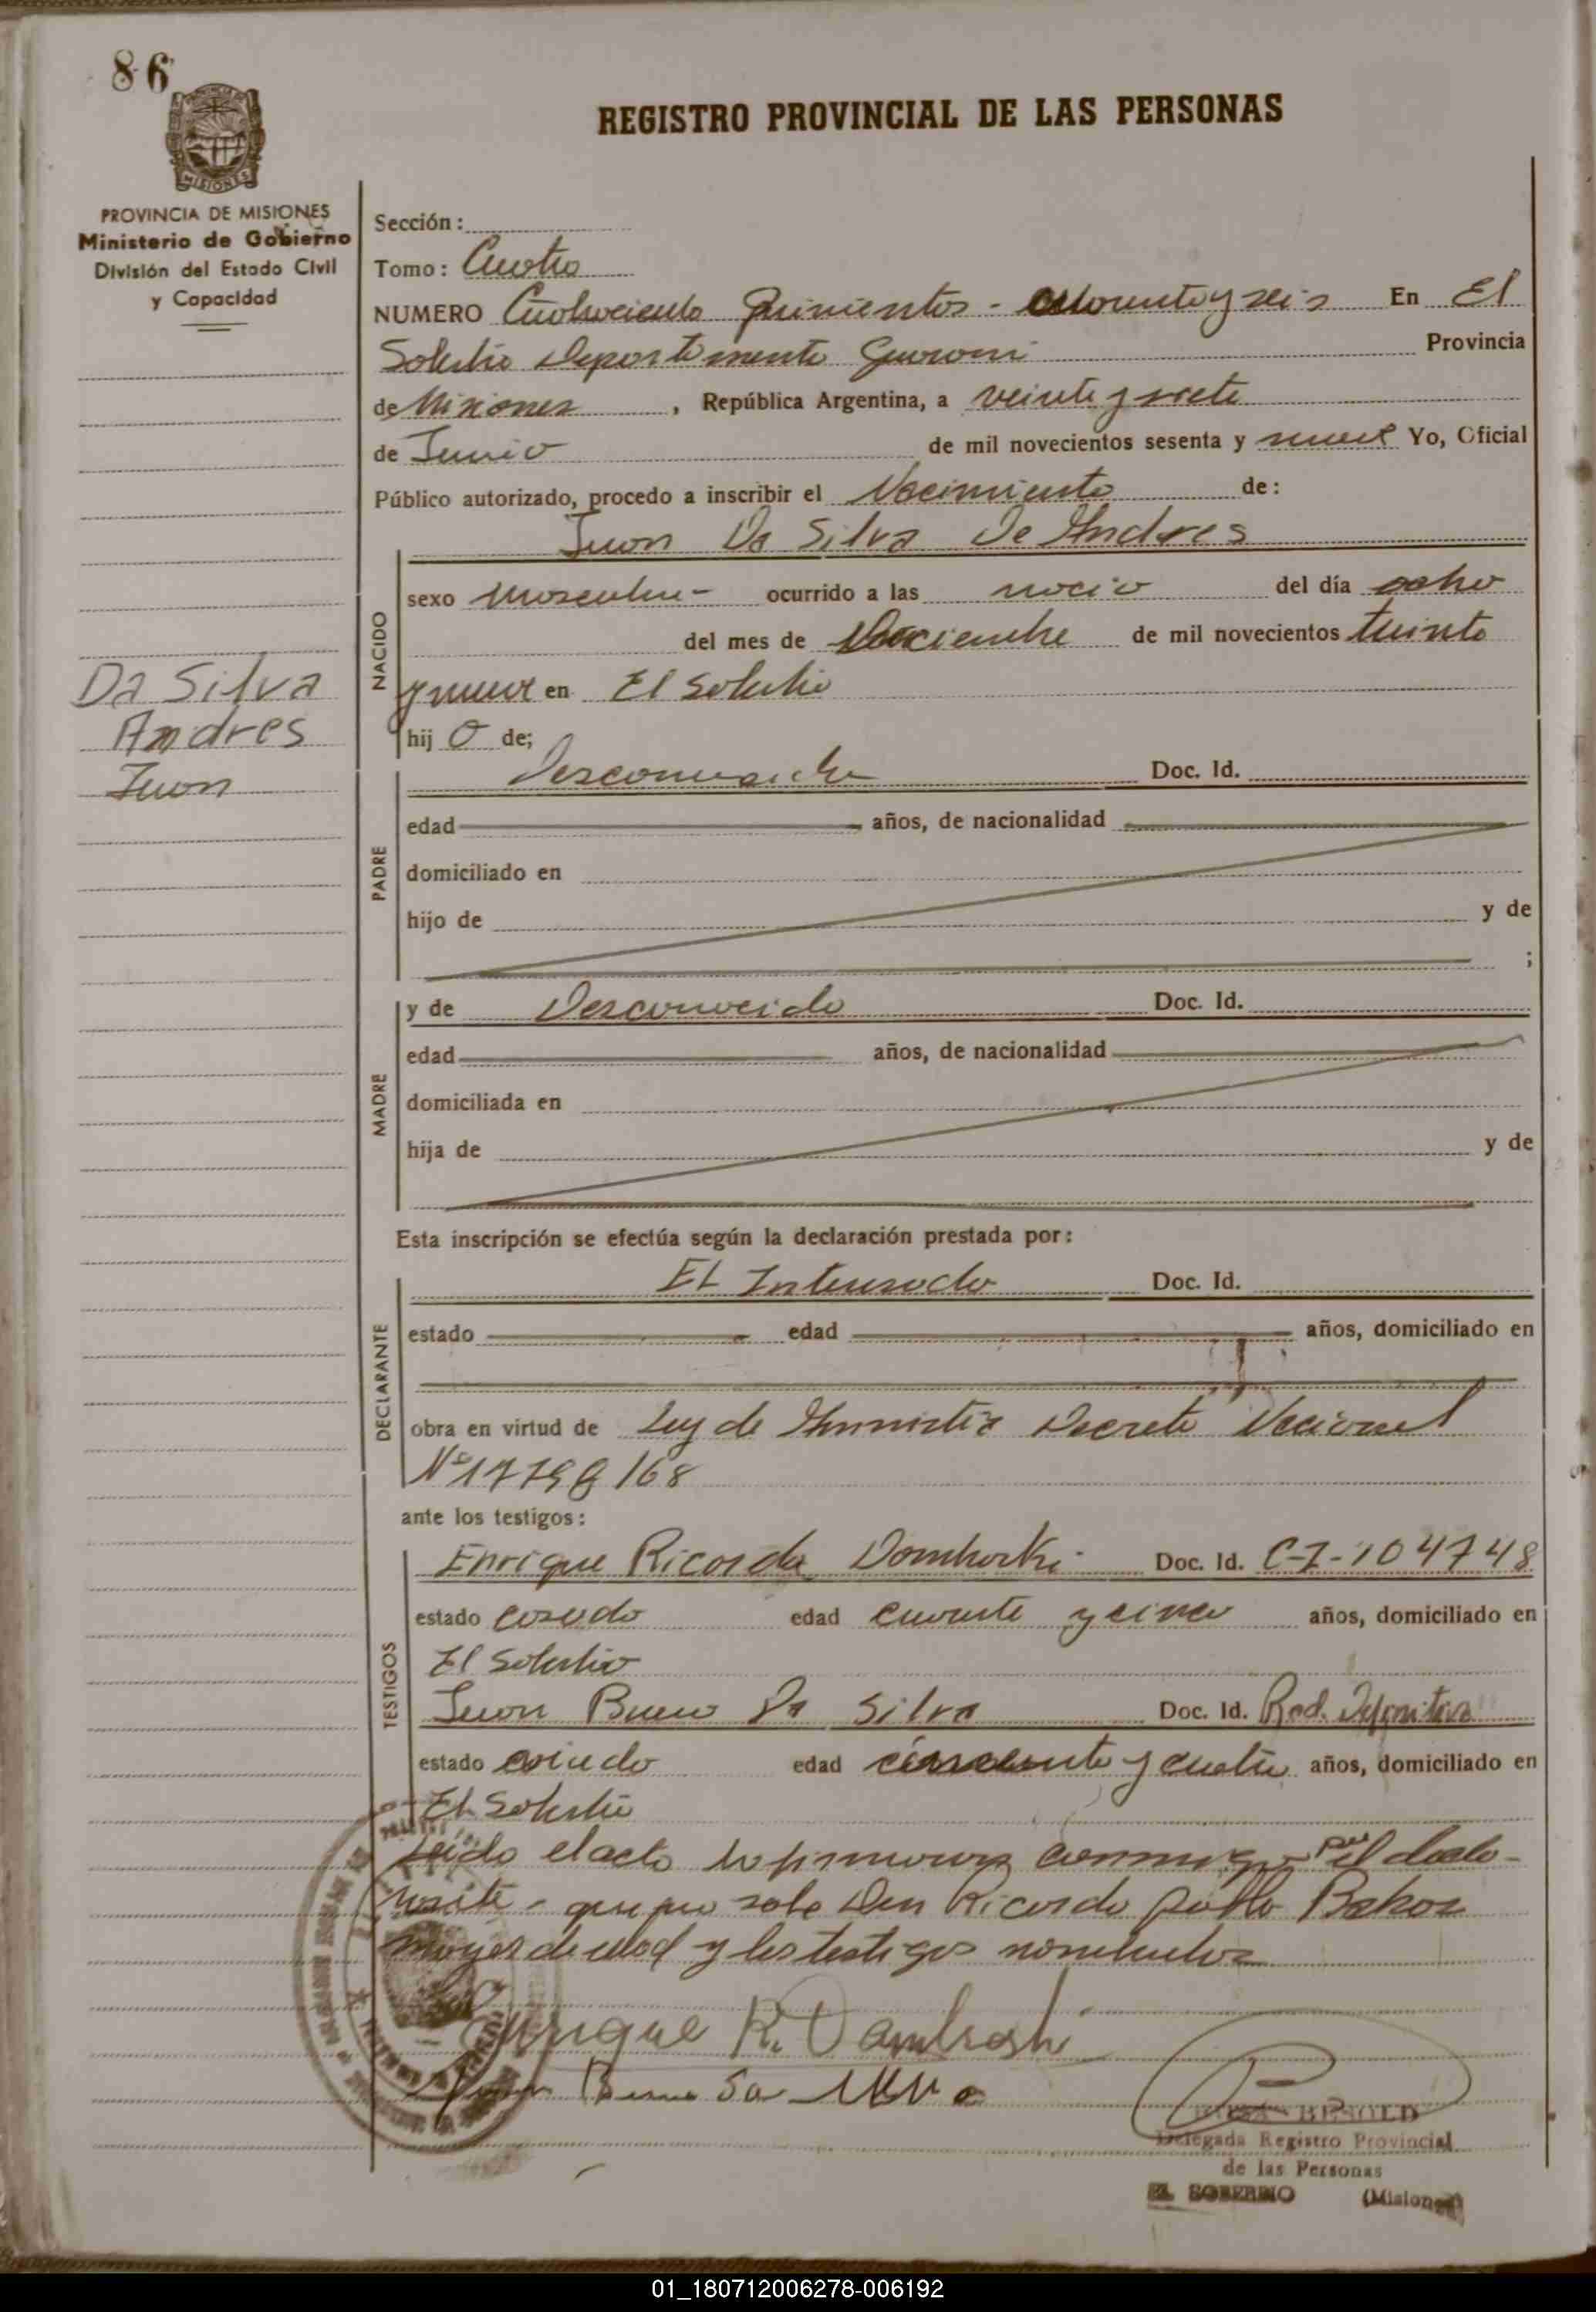 86
MISIONES
REGISTRO PROVINCIAL DE LAS PERSONAS
PROVINCIA DE MISIONES
Ministerio de Gobierno
División del Estado Civil
y Capacidad
Sección:
Tomo: Cuatro
NUMERO Quinientos - cuarenta y seis En El
Soberbio Departamento Guarani Provincia
de Misiones, República Argentina, a veinte y siete
de Junio de mil novecientos sesenta y nueve Yo, Oficial
Público autorizado, procedo a inscribir el Nacimiento de:
Juan Da Silva De Andres
NACIDO
sexo Masculino - ocurrido a las nació del día ocho
del mes de Diciembre de mil novecientos treinta
y nueve en El Soberbio
hij o de;
Da Silva
Andres
Juan
PADRE
Desconocido Doc. Id.
edad años, de nacionalidad
domiciliado en
hijo de y de
;
MADRE
y de Desconocida Doc. Id.
edad años, de nacionalidad
domiciliada en
hija de y de
Esta inscripción se efectúa según la declaración prestada por:
DECLARANTE
El Interesado Doc. Id.
estado edad años, domiciliado en
obra en virtud de Ley de Amnistia Decreto Nacional
Nº 17798/68
ante los testigos:
TESTIGOS
Enrique Ricardo Domboski Doc. Id. C-I-104748
estado casado edad cuarenta y cinco años, domiciliado en
El Soberbio
Juan Bueno Da Silva Doc. Id. Rad. Definitiva
estado edad cincuenta y cuatro años, domiciliado en
El Soberbio
Leido el acto lo firmaron conmigo por el decla-
rante - que no sabe Don Ricardo Pablo
mayor de edad y los testigos nombrados
Enrique R. Dambroski
Juan Bueno Da Silva
BESOLD
Delegada Registro Provincial
de las Personas
EL SOBERBIO (Misiones)
01_180712006278-006192